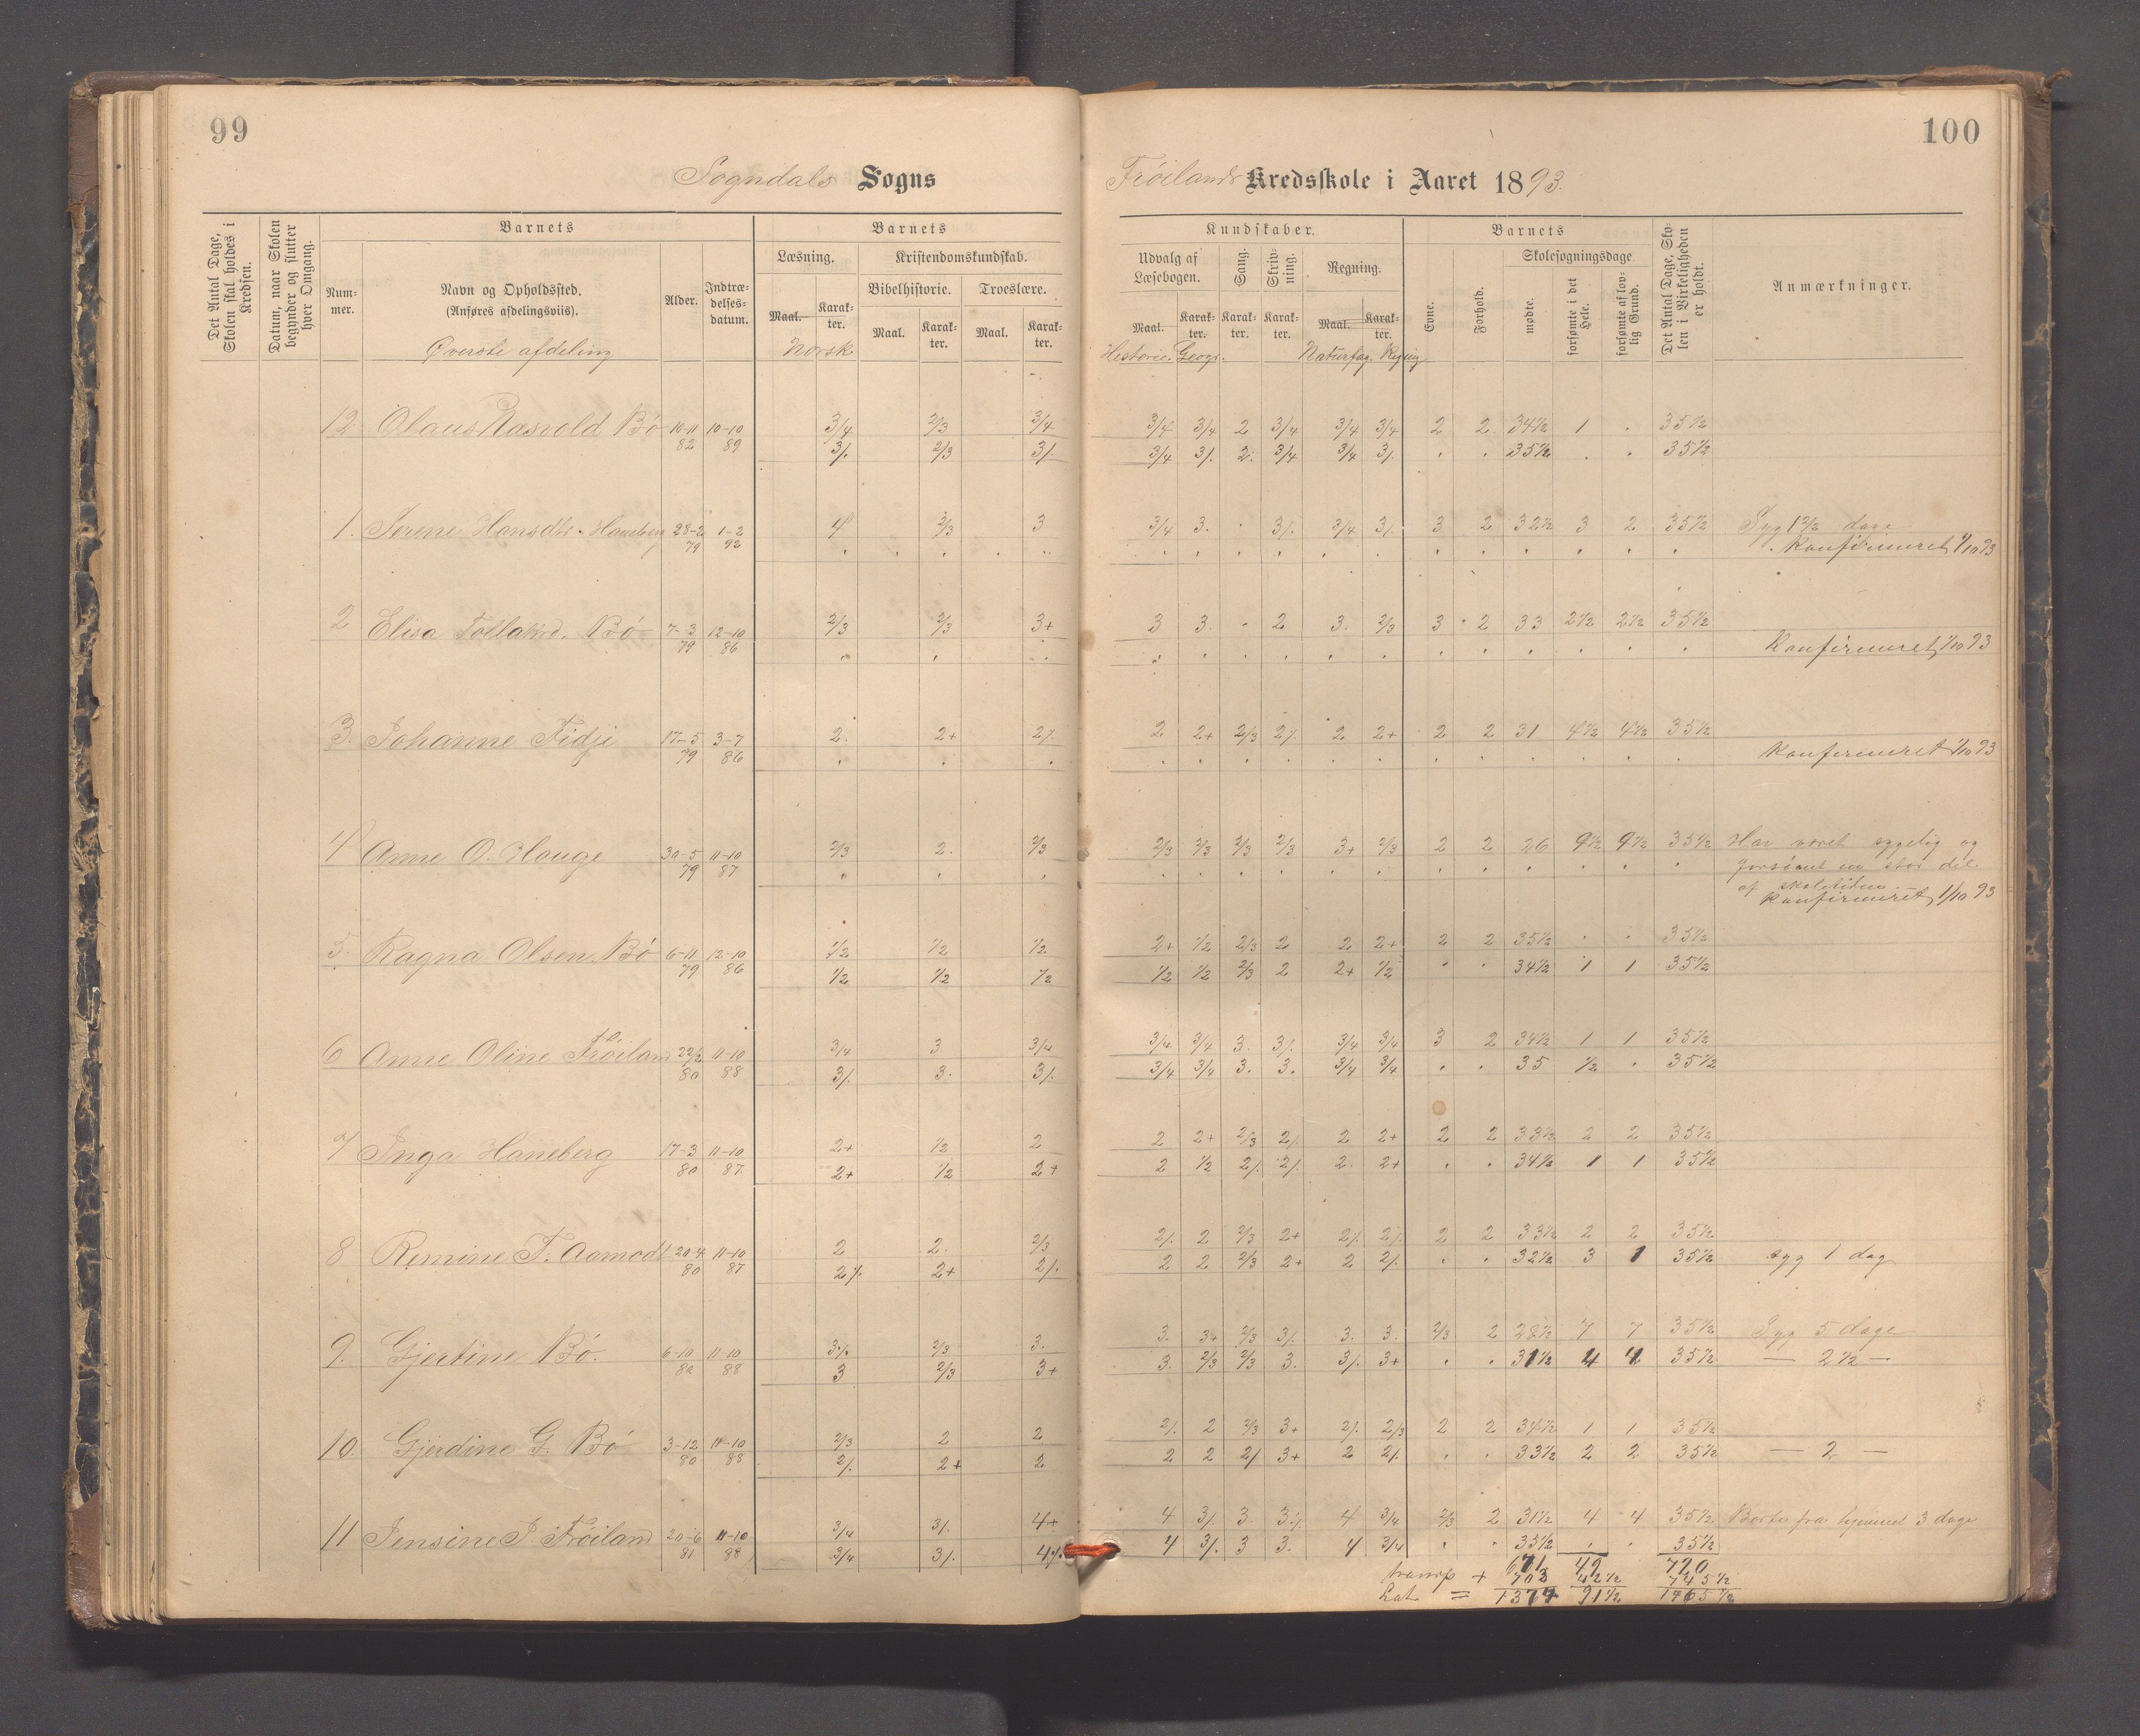 99
100
Sogndals Sogns
Frøilands Kredsskole i Aaret 1893.
Det Antal Dage, Skolen skal holdes i Kredsen.
Datum, naar Skolen begynder og slutter hver Omgang.
Barnets
Barnets
Kundskaber.
Barnets
Det Antal Dage, Skolen i Virkeligheden er holdt.
Anmærkninger.
Nummer.
Navn og Opholdssted.
(Anføres afdelingsviis).
Alder.
Indtrædelsesdatum.
Læsning.
Kristendomskundskab.
Bibelhistorie.
Troeslære.
Maal.
Karakter.
Maal.
Karakter.
Maal.
Karakter.
Udvalg af Læsebogen.
Sang.
Skrivning.
Regning.
Maal.
Karakter.
Karakter.
Karakter.
Maal.
Karakter.
Evne.
Forhold.
Skolesøgningsdage
mødte.
forsømte i det Hele.
forsømte af lovlig Grund.
Øverste afdeling
Norsk
Historie. Geogr.
Naturfag. Regning
12 Olaus Rasvold Bø 10-11 82 10-10 89 3/4 2/3 3/4 3/4 3/4 2 3/4 3/4 3/4 2 2 34½ 1 . 35½
3/. 2/3 3/. 3/4 3/. 2. 3/4 3/4 3/. . . 35½ . . 35½
1. Serene Hansdtr. Haneberg 28-2 79 1-2 92 4 2/3 3 3/4 3. . 3/. 3/4 3/. 3 2 32½ 3 2 35½ Syg 1½ dage
Konfirmeret 1/10 93
2 Elisa Tollaksd. Bø 7-3 79 12-10 86 2/3 2/3 3+ 3 3. - 2 3. 2/3 3 2 33 2½ 2½ 35½
Konfirmeret 1/10 93
3. Johanne Fidje 17-5 79 3-7 86 2. 2+ 2/. 2 2+ 2/3 2/. 2 2+ 2 2 31 4½ 4½ 35½
Konfirmeret 1/10 93
4 Anne O. Hauge 30-5 79 11-10 87 2/3 2. 2/3 2/3 2/3 2/3 2/3 3+ 2/3 2 2 26 9½ 9½ 35½ Har været sygelig og
forsømt en stor del
af skoletiden.
Konfirmeret 1/10 93
5. Ragna Olsen Bø 6-11 79 12-10 86 1/2 1/2 1/2 2+ 1/2 2/3 2 2 2+ 2 2 35½ . . 35½
1/2 1/2 1/2 1/2 1/2 2/3 2 2+ 1/2 . . 34½ 1 1 35½
6 Anne Oline Frøiland 22/2 80 11-10 88 3/4 3 3/4 3/4 3/4 3. 3/. 3/4 3/4 3 2 34½ 1 1 35½
3/. 3. 3/. 3/4 3/4 3. 3. 3/4 3/4 . . 35 ½ . 35½
7 Inga Haneberg 17-3 80 11-10 87. 2+ 1/2 2 2 2+ 2/3 2/. 2 2+ 2 2 33½ 2 2 35½
2+ 1/2 2+ 2 1/2 2/. 2/. 2. 2+ . . 34½ 1 1 35½
8 Remine T. Aamodt 20-4 80 11-10 87 2 2. 2/3 2/. 2 2/3 2+ 2/. 2/. 2 2 33½ 2 2 35½
2/. 2+ 2/. 2 2 2/3 2+ 2 2/. . . 32½ 3 1 35½ syg 1 dag
9. Gjertine Bø. 6-10 80 11-10 88 3/. 2/3 3. 3. 3+ 2/3 3/. 3. 3. 2/3 2 28½ 7 7 35½ Syg 5 dage
3 2/3 3+ 3. 2/3 2/3 3. 3/. 3+ . . 31½ 4 4 35½ — 2½ —
10. Gjerdine G. Bø 3-12 80 11-10 88 2/3 2 2 2/. 2 2/3 3+ 2/. 2/3 2 2 34½ 1 1 35½
2/. 2+ 2 2 2 2/ 3+ 2 2/. . . 33½ 2 2 35½ — 2 —
11 Jensine J. Frøiland 20-6 81 11-10 88 3/4 3/. 4+ 4 3/. 3. 3/. 4 3/4 2/3 2 31½ 4 4 35½ Borte fra hjemmet 3 dage
3/4 3/. 4/. 4 3/. 3 3. 4 3/4 . . 35½ . . 35½
671 49 720
transp + 703 42½ 745½
Lat = 1374 91½ 1465½